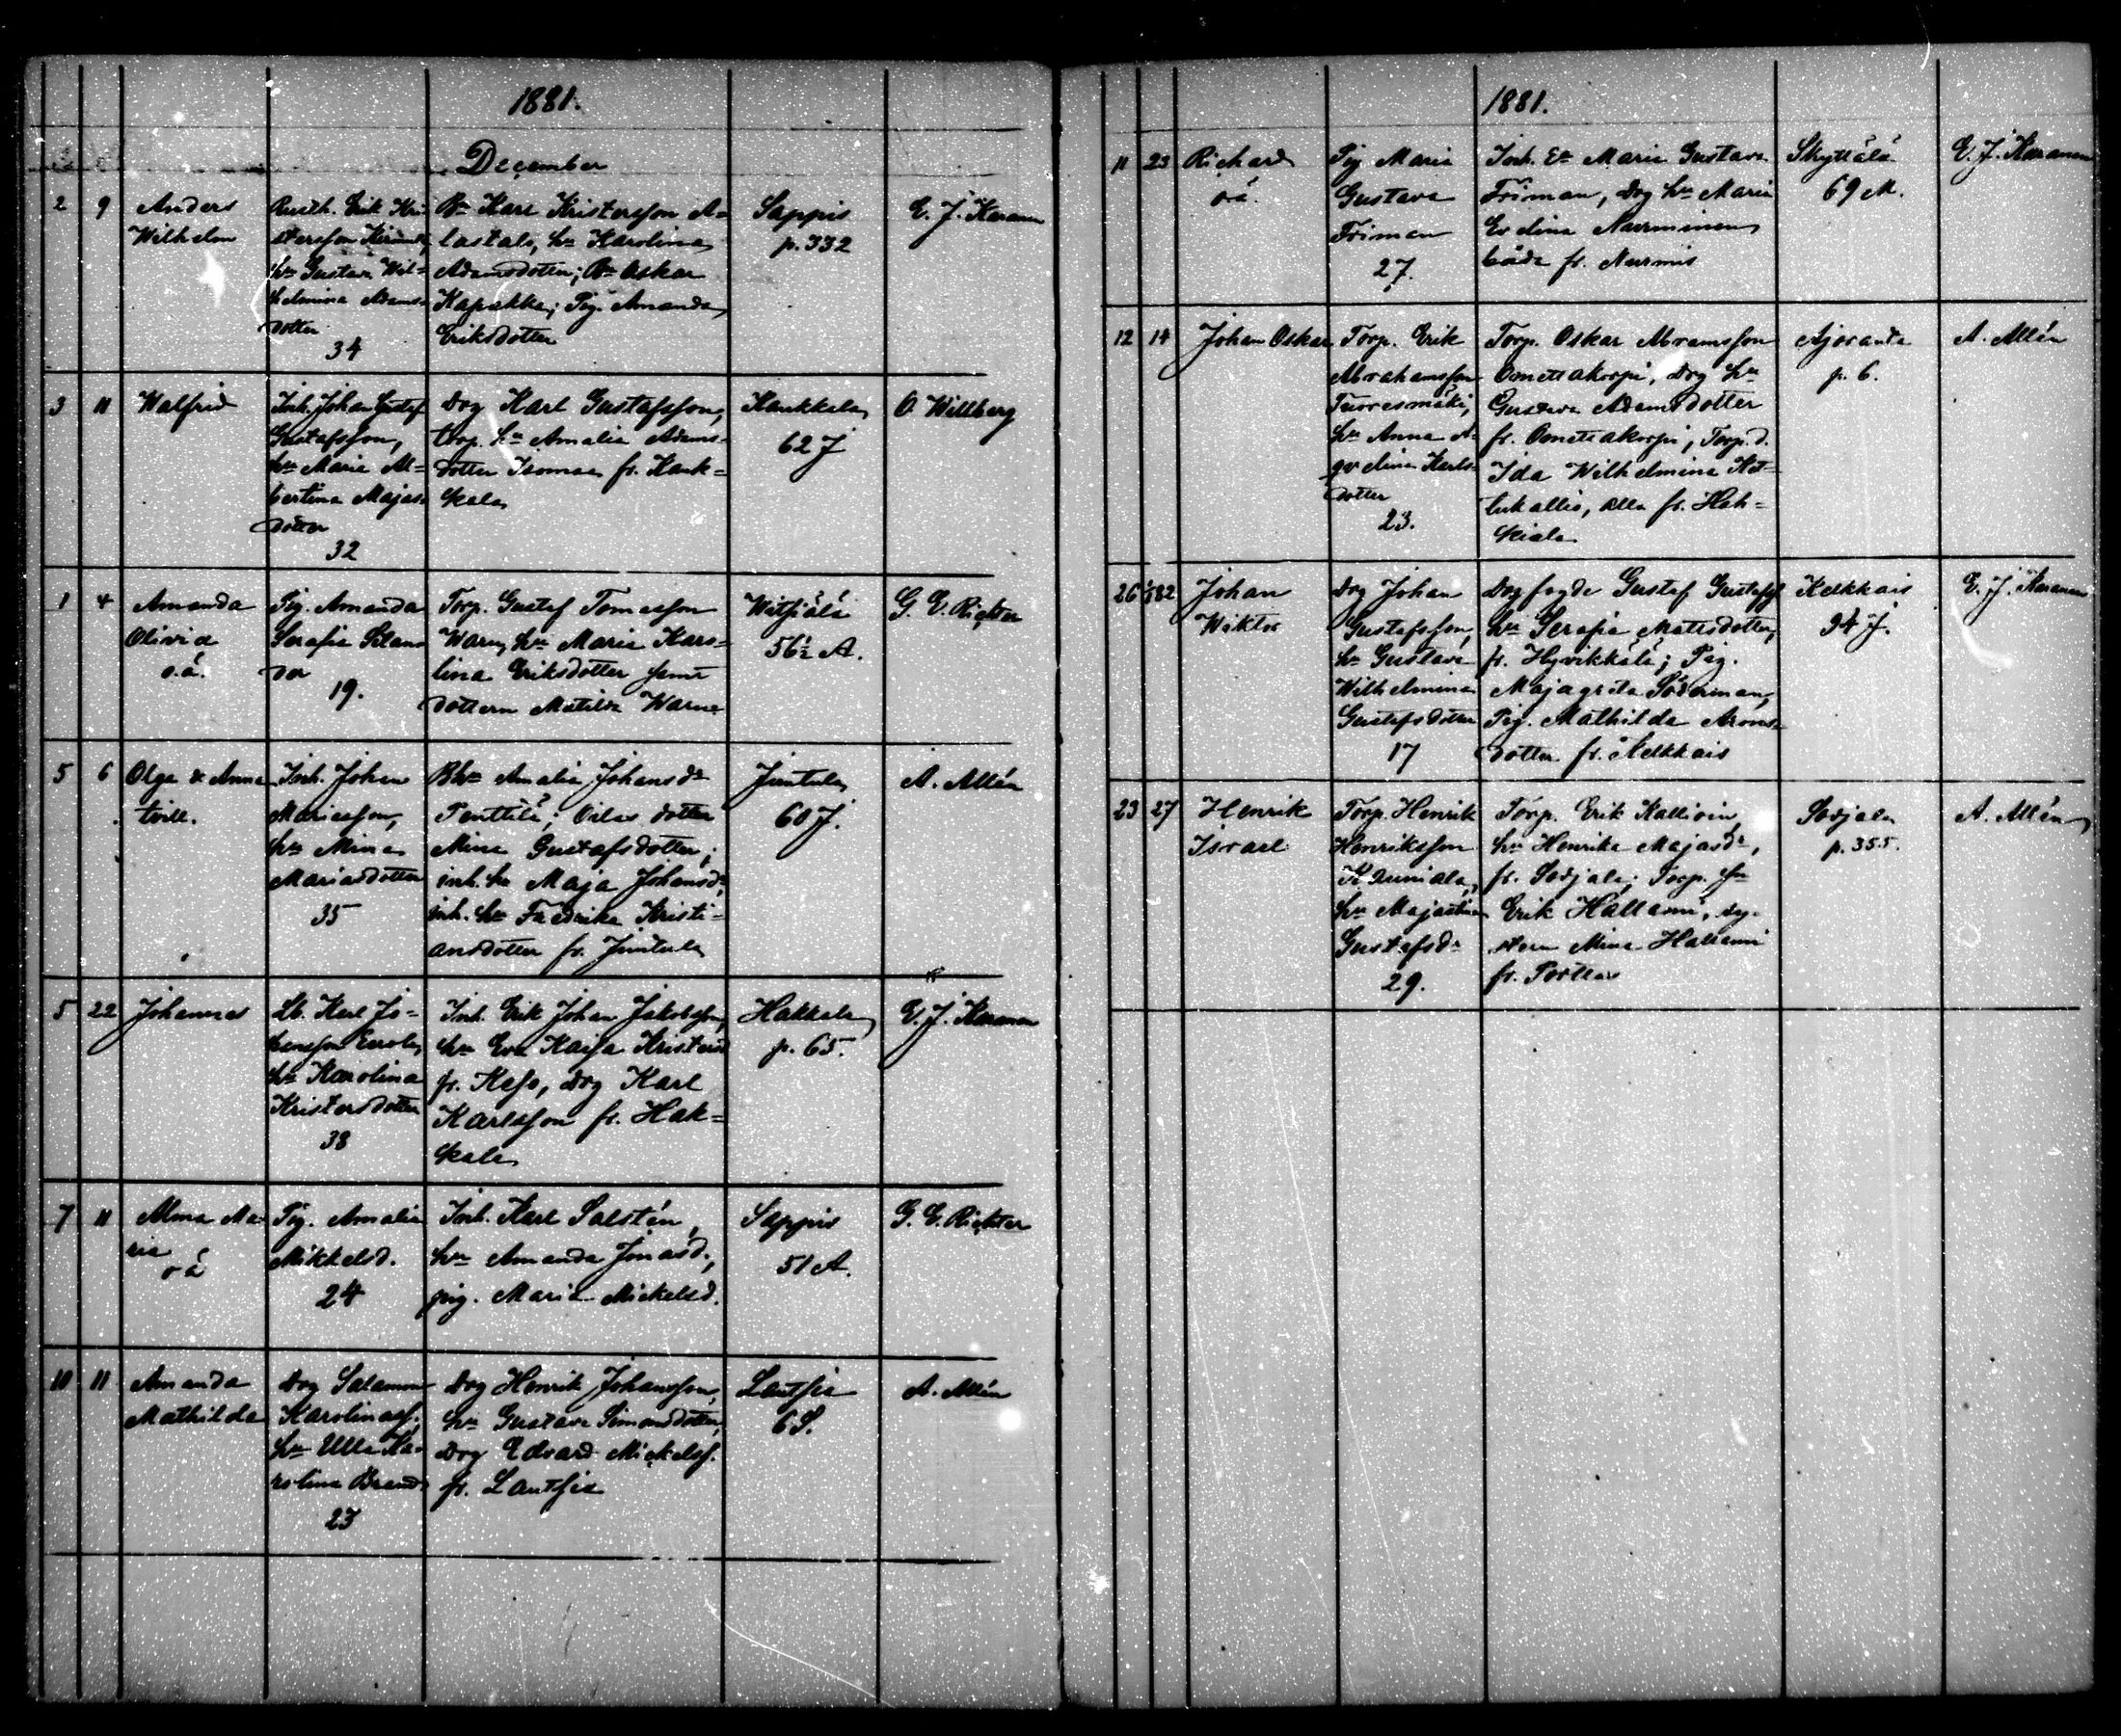 1881.
December
2 9 Anders Wilhelm
Rusth. Erik Kri-
stersson
hu Gustava Wil-
helmina Adams-
dotter
34
Bn Karl Kristersson A-
lastalo, hu Karolina
Adamsdotter; Bn Oskar
Kapakka; Pig. Amanda
Eriksdotter
Sappis
p. 332
E. J. Karanen
3 11 Walfrid
Inh. Johan Gustaf
Gustafsson,
hu Maria Al-
bertina Majas-
dotter
32
Drg Karl Gustafsson,
torp. hu Amalia Adams-
dotter Isomaa fr. Kauk-
kala
Kaukkala
62 J
O. Willberg
1 4 Amanda
Olivia
o.ä.
Pig. Amanda
Serafia Selan-
der
19.
Torp. Gustaf Tomasson
Warn, hu Maria Karo-
lina Eriksdotter samt
dottern Matilda Warna
Witsiälä
56½ A.
G. E. Richter
5 6 Olga & Anna
tvill.
Inh. Johan
Mariasson,
hu Mina
Mariasdotter
35
Bhu Amalia Johansdr
Penttilä; dotter
Mina Gustafsdotter;
inh. hu Maja Johansdr,
inh. hu Fredrika Kristi-
ansdotter fr. Juntula
Juntula
60 J.
A. Allén
5 22 Johannes
Karl Jo-
hansson Eerola,
hu Karolina
Kristersdotter
38
Inh. Erik Johan Jakobsson,
hu Eva Kaisa Kristersd
fr. Kess, drg Karl
Karlsson fr. Hak-
kala
Hakkala
p. 65.
E. J. Karanen
7 11 Alma Ma-
ria
oä
Pig. Amalia
Mikkelsd.
24
Inh. Karl Salstén,
hu Amanda Jonasd.,
pig. Maria Mickelsd.
Sappis
51 A.
G. E. Richter
10 11 Amanda
Mathilda
Drg Salamon
Karolinass.
hu Ulla Ka-
rolina Brand
23
Drg Henrik Johansson,
hu Gustava Simonsdotter,
Drg Edvard Mickelss.
fr. Lautsia
Lautsia
6 S.
A. Allén
1881.
11 23 Richard
oä.
Pig Maria
Gustava
Friman
27.
Inh. Ea Maria Gustava
Friman, Drg hu Maria
Evelina Nurminen
båda fr. Nurmis
Skyttälä
69 M.
E. J. Karanen
12 14 Johan Oskar
Torp. Erik
Abrahamsson
Tuoresmäki,
hu Anna A-
gvelina Karls-
dotter
23.
Torp. Oskar Abramsson
Ometrakorpi, Drg hu
Gustava Adamsdotter
fr. Ometrakorpi, Torp. d.
Ida Wilhelmina Ket-
tukallio, alla fr. Hah-
kiala
Ajoranta
p. 6.
A. Allén
26 1/182 Johan
Wiktor
Drg Johan
Gustafsson,
hu Gustava
Wilhelmina
Gustafsdotter
17
Drg fogde Gustaf Gustafss
hu Serafia Mattsdotter,
fr. Hyvikkälä; Pig.
Majagreta Söderman,
Pig. Mathilda Arons-
dotter fr. Kelkkais
Kelkkais
94 J.
E. J. Karanen
23 27 Henrik
Israel
Torp. Henrik
Henriksson
hu Majastina
Gustafsdr
29.
Torp. Erik Kallioin,
hu Henrika Majasdr,
fr. Sodjala; Torp. sn
Erik Hallami, sy-
stern Mina Hallami
fr. Porttas
Sodjala
p. 355.
A. Allén